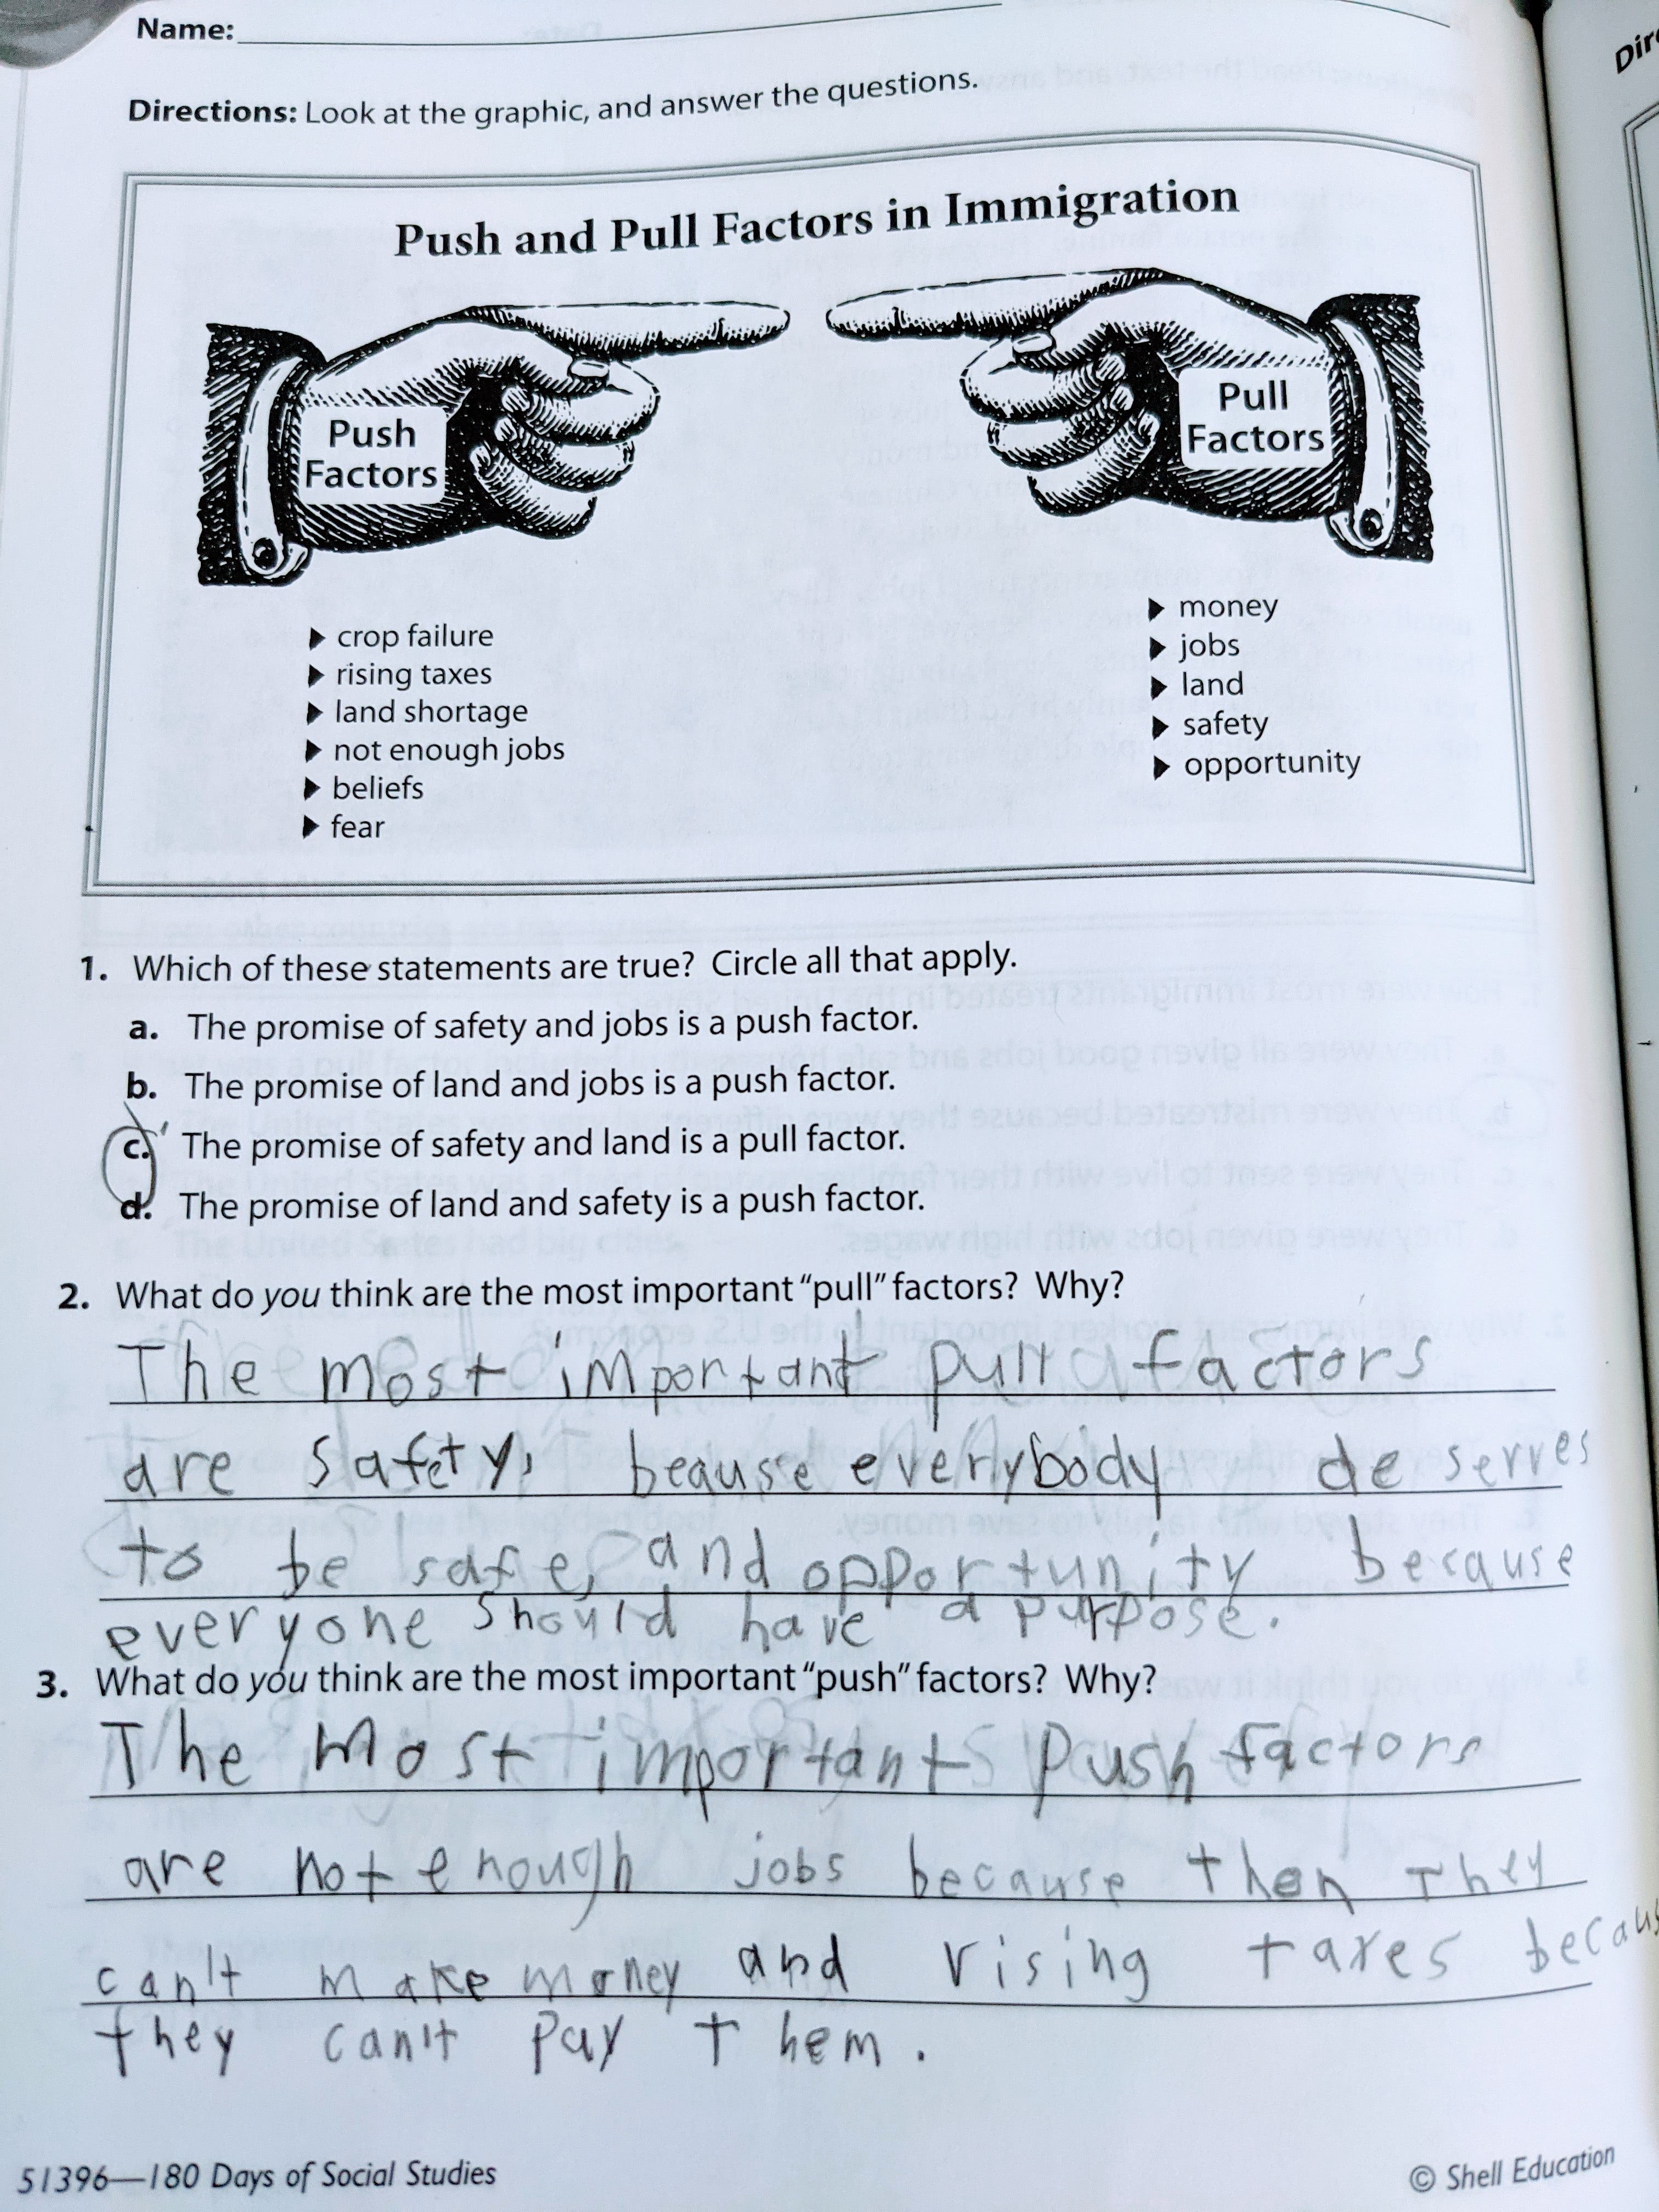 Name:
Directions: Look at the graphic, and answer the questions.
Dir
Push and Pull Factors in Immigration
Push
Factors
Pull
Factors
▶ crop failure
▶ rising taxes
▶ land shortage
▶ not enough jobs
▶ beliefs
▶ fear
▶ money
▶ jobs
▶ land
▶ safety
▶ opportunity
1. Which of these statements are true? Circle all that apply.
a. The promise of safety and jobs is a push factor.
b. The promise of land and jobs is a push factor.
c. The promise of safety and land is a pull factor.
d. The promise of land and safety is a push factor.
2. What do you think are the most important "pull" factors? Why?
The most important pull factors
are safety, beqause everybody deserves
to be safe, and opportunity because
everyone should have a purpose.
3. What do you think are the most important "push" factors? Why?
The most important push factors
are not enough jobs because then they
can't make money and rising taxes becaus
they can't pay them.
51396—180 Days of Social Studies
© Shell Education